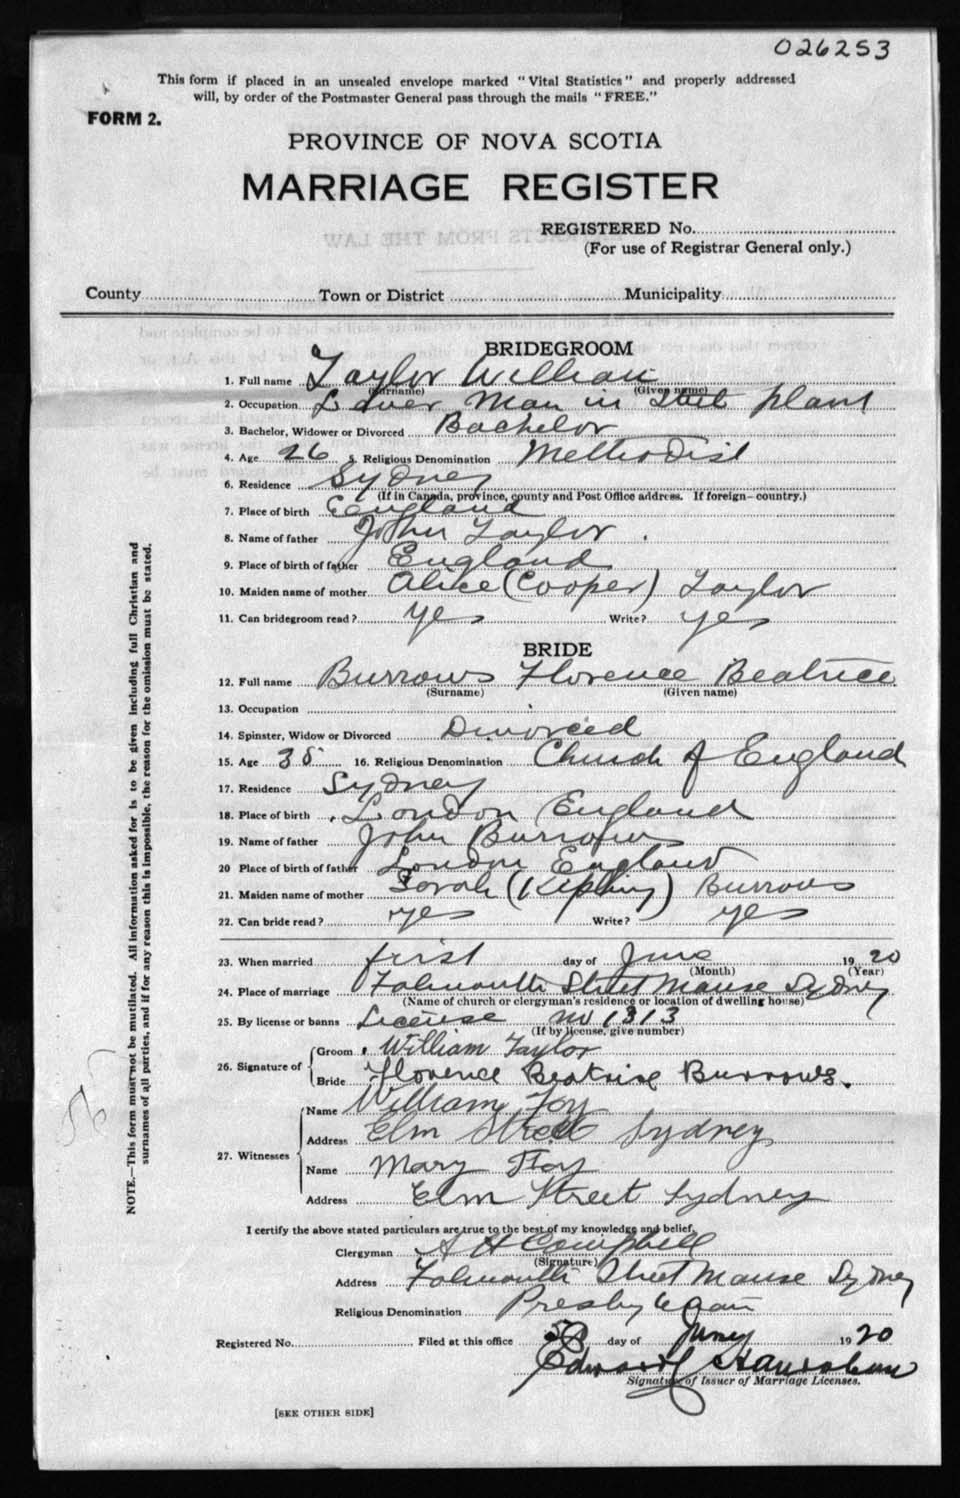 026253
This form if placed in an unsealed envelope marked "Vital Statistics" and properly addressed
will, by order of the Postmaster General pass through the mails "FREE."
FORM 2.
PROVINCE OF NOVA SCOTIA
MARRIAGE REGISTER
REGISTERED No.
(For use of Registrar General only.)
County Town or District Municipality
BRIDEGROOM
1. Full name Taylor William
(Surname) (Given name)
2. Occupation Man in Steel plant
3. Bachelor, Widower or Divorced Bachelor
4. Age 26 5. Religious Denomination Methodist
6. Residence Sydney
(If in Canada, province, county and Post Office address. If foreign—country.)
7. Place of birth England
8. Name of father John Taylor
9. Place of birth of father England
10. Maiden name of mother Alice (Cooper) Taylor
11. Can bridegroom read? yes Write? yes
BRIDE
12. Full name Burrows Florence Beatrice
(Surname) (Given name)
13. Occupation
14. Spinster, Widow or Divorced Divorced
15. Age 16. Religious Denomination Church of England
17. Residence Sydney
18. Place of birth London England
19. Name of father John Burrows
20 Place of birth of father London England
21. Maiden name of mother Sarah (Kipling) Burrows
22. Can bride read? yes Write? yes
23. When married first day of June 1920
(Month) (Year)
24. Place of marriage Falmouth Street Manse Sydney
(Name of church or clergyman's residence or location of dwelling house)
25. By license or banns License no 1313
(If by license, give number)
26. Signature of
Groom William Taylor
Bride Florence Beatrice Burrows.
27. Witnesses
Name William Foy
Address Elm Street Sydney
Name Mary Foy
Address Elm Street Sydney
I certify the above stated particulars are true to the best of my knowledge and belief,
Clergyman A H Campbell
(Signature)
Address Falmouth Street Manse Sydney
Religious Denomination Presbyterian
Registered No. Filed at this office day of 1920
Edward
Signature of Issuer of Marriage Licenses.
[SEE OTHER SIDE]
NOTE.—This form must not be mutilated. All information asked for is to be given including full Christian and
surnames of all parties, and if for any reason this is impossible, the reason for the omission must be stated.